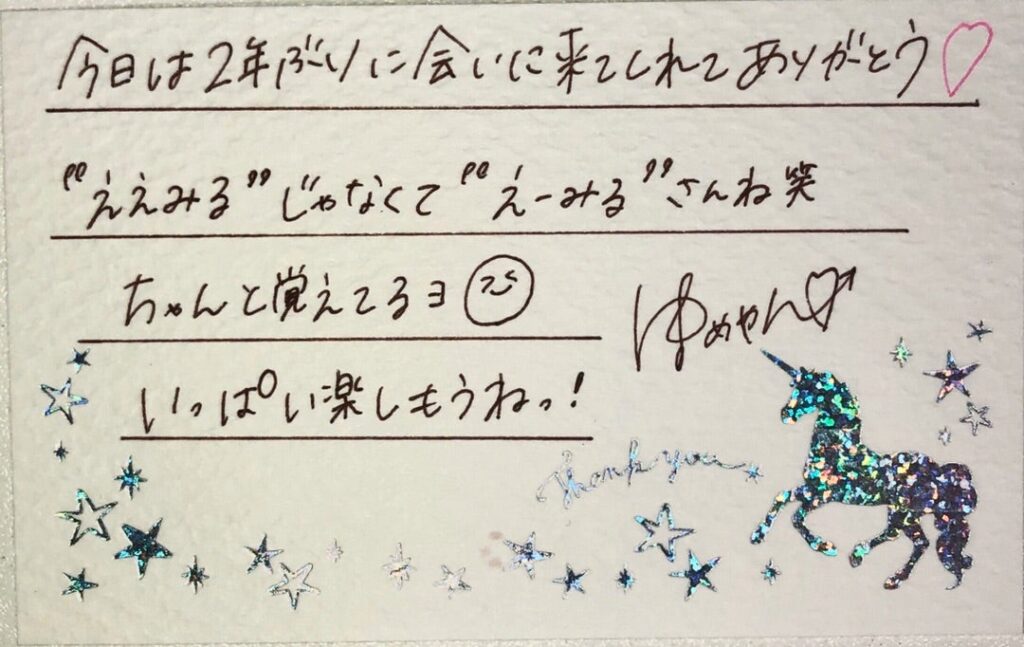 今日は2年ぶりに会いに来てくれてありがとう♡
“ええみる”じゃなくて“えーみる”さんね笑
ちゃんと覚えてるヨ
ゆめやん♡
いっぱい楽しもうねっ!
Thank you